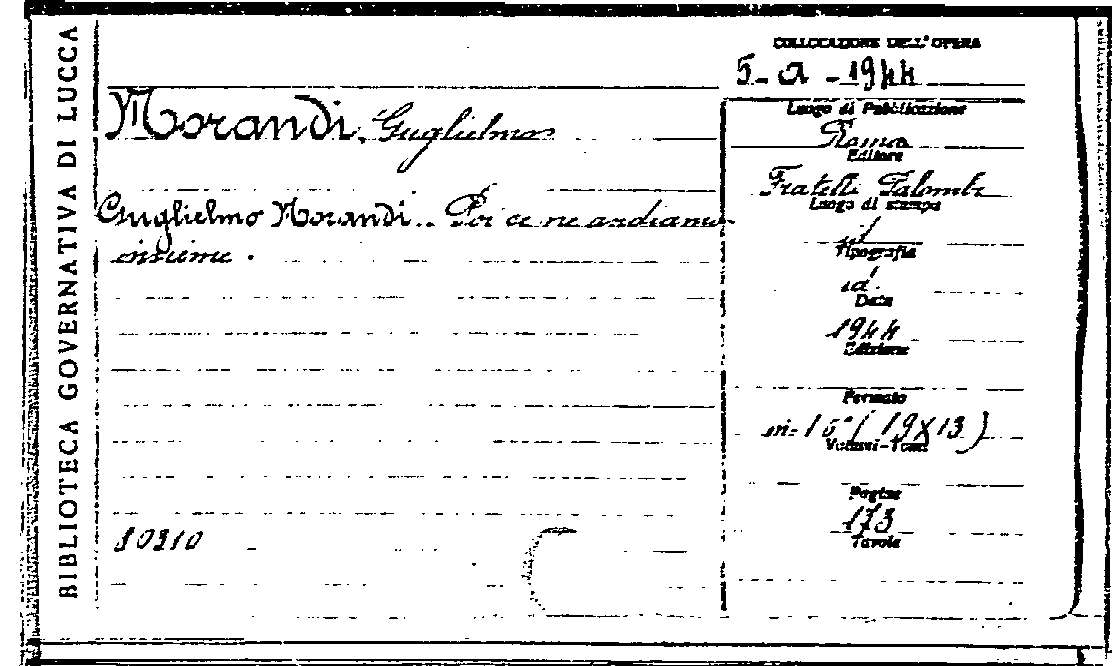 BIBLIOTECA GOVERNATIVA DI LUCCA
COLLOCAZIONE DELL'OPERA
5-a-1944
Morandi, Guglielmo
Guglielmo Morandi.. Poi ce ne andiamo
insieme.
Luogo di Pubblicazione
Roma
Editore
Fratelli Palombi
Luogo di stampa
Tipografia
id.
Data
1944
Edizione
Formato
in-16° (19X13)
Volumi-Tomi
Pagine
173
Tavole